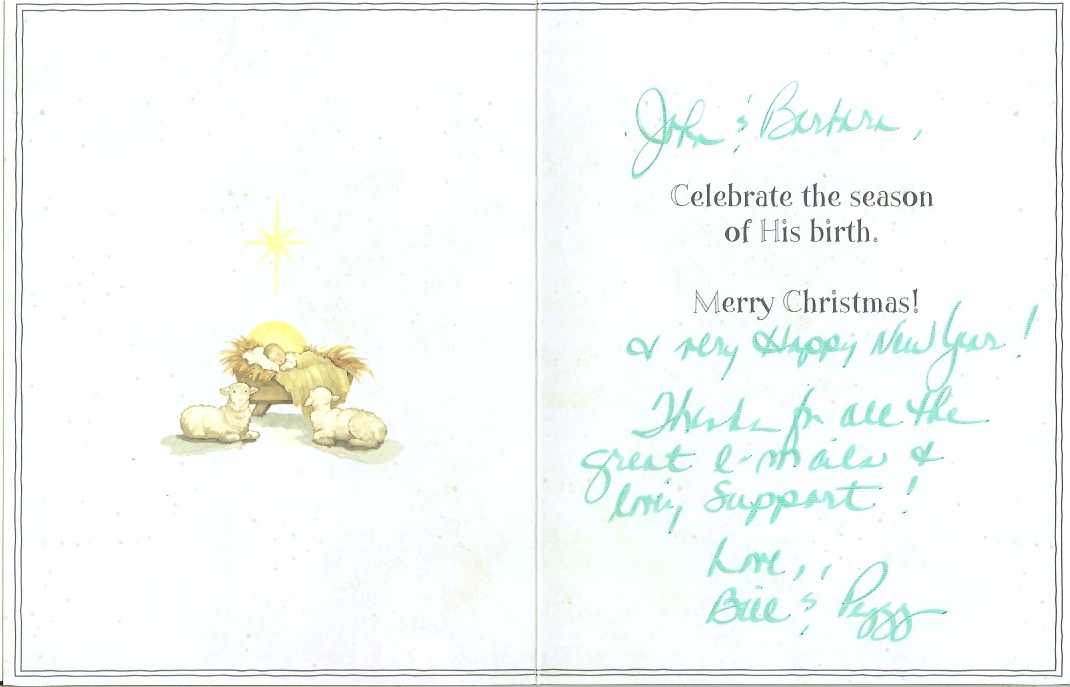 John & Barbara,
Celebrate the season
of His birth.
Merry Christmas!
& very Happy New Year!
Thanks for all the
great e-mails &
loving Support!
Love,,
Bill & Peggy